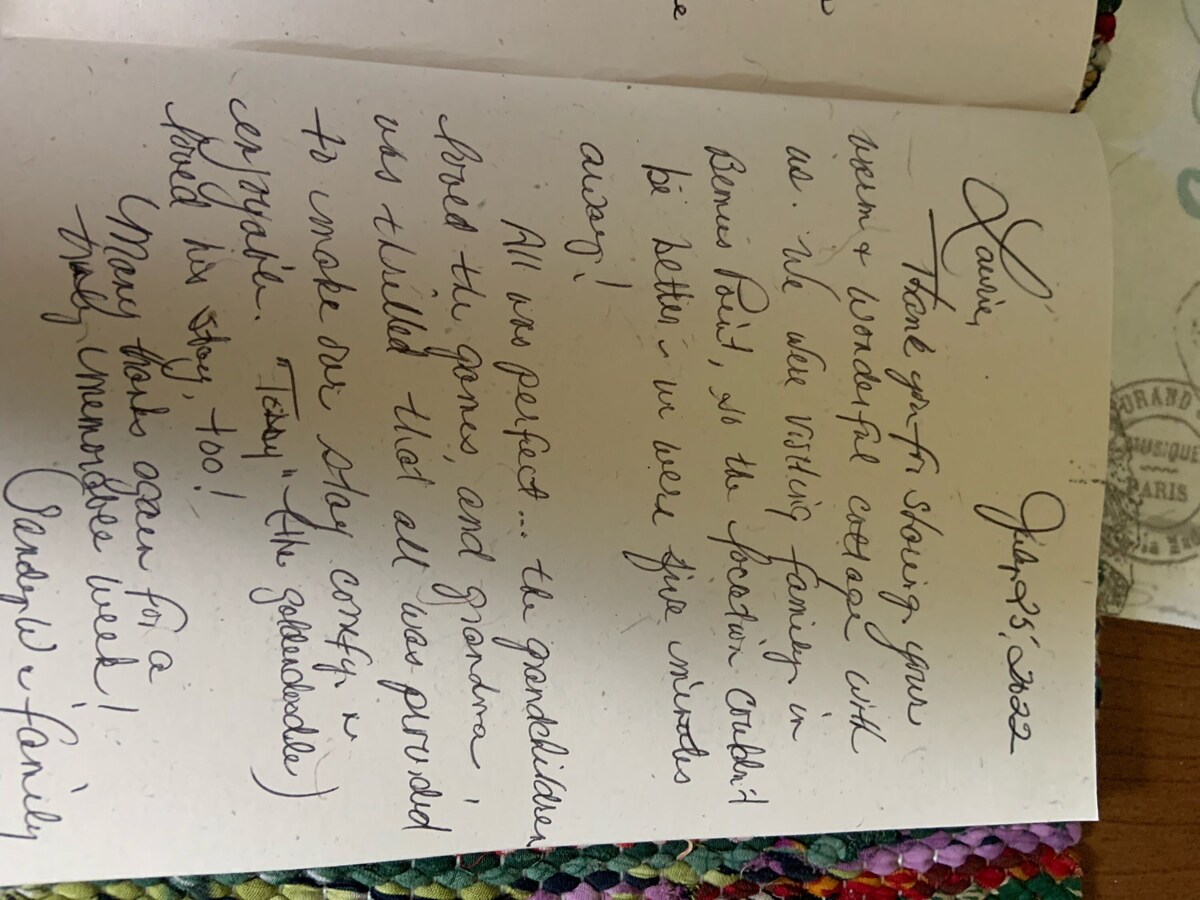 July 25, 2022
Laurie,
Thank you for sharing your
warm & wonderful cottage with
us. We were visiting family in
Bemus Point, so the location couldn't
be better - we were five minutes
away!
All was perfect... the grandchildren
loved the games, and grandma
was thrilled that all was provided
to make our stay comfy &
enjoyable. "Teddy" (the goldendoodle)
loved his stay, too!
Many thanks again for a
truly memorable week!
Sandy W & family
GRAND
MUSIQUE
PARIS